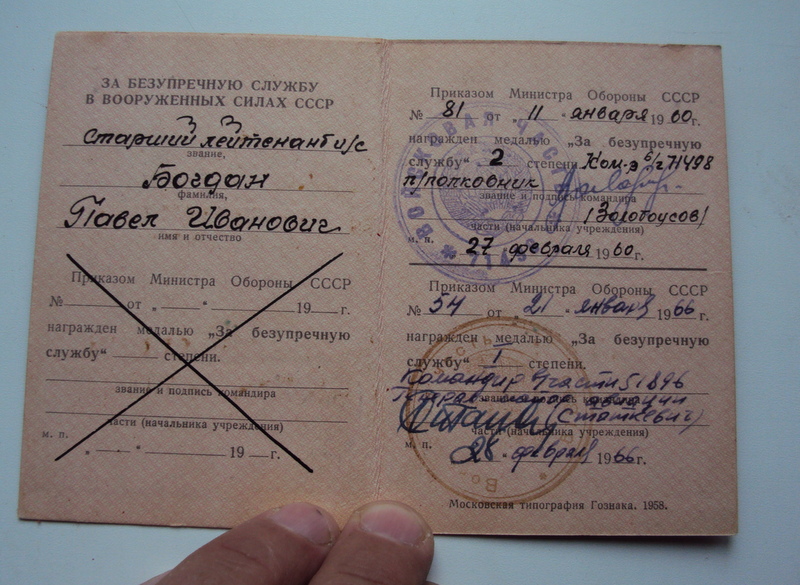 ЗА БЕЗУПРЕЧНУЮ СЛУЖБУ
В ВООРУЖЕННЫХ СИЛАХ СССР
старший лейтенант и/с
звание,
Богдан
фамилия,
Павел Иванович
имя и отчество
Приказом Министра Обороны СССР
№ от „ “ 19 г.
награжден медалью „За безупречную
службу“ степени.
звание и подпись командира
части (начальника учреждения)
м. п.
„ “ 19 г.
Приказом Министра Обороны СССР
№ 81 от „11“ января 1960г.
награжден медалью „За безупречную
службу“ 2 степени. Ком-р в/ч 71498
п/полковник
звание и подпись командира
(Золотоусов)
части (начальника учреждения)
м. п. 27 февраля 1960г.
ВОЙСКОВАЯ ЧАСТЬ
Приказом Министра Обороны СССР
№ 54 от „21“ января 1966г.
награжден медалью „За безупречную
службу“ I степени.
Командир части 51896
Генерал-майор авиации
звание и подпись командира
(Статкевич)
части (начальника учреждения)
м. п. „28“ февраля 1966г.
Московская типография Гознака. 1958.